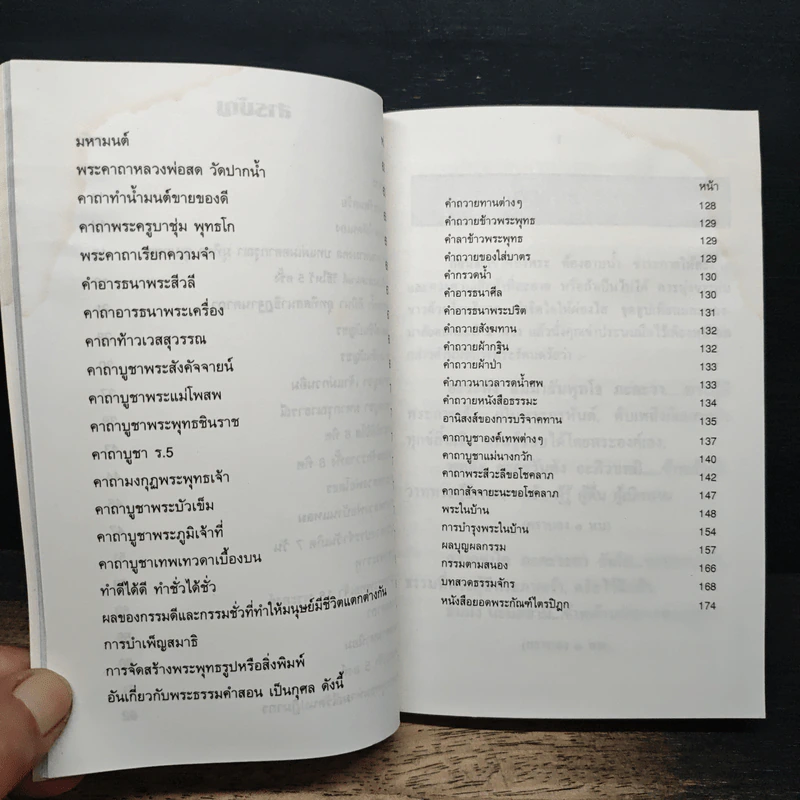 มหามนต์
พระคาถาหลวงพ่อสด วัดปากน้ำ
คาถาทำน้ำมนต์ขายของดี
คาถาพระครูบาชุ่ม พุทธโก
พระคาถาเรียกความจำ
คำอารธนาพระสีวลี
คาถาอารธนาพระเครื่อง
คาถาท้าวเวสสุวรรณ
คาถาบูชาพระสังคัจจายน์
คาถาบูชาพระแม่โพสพ
คาถาบูชาพระพุทธชินราช
คาถาบูชา ร.5
คาถามงกุฎพระพุทธเจ้า
คาถาบูชาพระบัวเข็ม
คาถาบูชาพระภูมิเจ้าที่
คาถาบูชาเทพเทวดาเบื้องบน
ทำดีได้ดี ทำชั่วได้ชั่ว
ผลของกรรมดีและกรรมชั่วที่ทำให้มนุษย์มีชีวิตแตกต่างกัน
การบำเพ็ญสมาธิ
การจัดสร้างพระพุทธรูปหรือสิ่งพิมพ์
อันเกี่ยวกับพระธรรมคำสอน เป็นกุศล ดังนี้
หน้า
คำถวายทานต่างๆ 128
คำถวายข้าวพระพุทธ 129
คำลาข้าวพระพุทธ 129
คำถวายของใส่บาตร 129
คำกรวดน้ำ 130
คำอารธนาศีล 130
คำอารธนาพระปริต 131
คำถวายสังฆทาน 132
คำถวายผ้ากฐิน 132
คำถวายผ้าป่า 133
คำภาวนาเวลารดน้ำศพ 133
คำถวายหนังสือธรรมะ 134
อานิสงส์ของการบริจาคทาน 135
คาถาบูชาองค์เทพต่างๆ 137
คาถาบูชาแม่นางกวัก 140
คาถาพระสีวะลีขอโชคลาภ 142
คาถาสัจจายะนะขอโชคลาภ 147
พระในบ้าน 148
การบำรุงพระในบ้าน 154
ผลบุญผลกรรม 157
กรรมตามสนอง 166
บทสวดธรรมจักร 168
หนังสือยอดพระกัณฑ์ไตรปิฎก 174